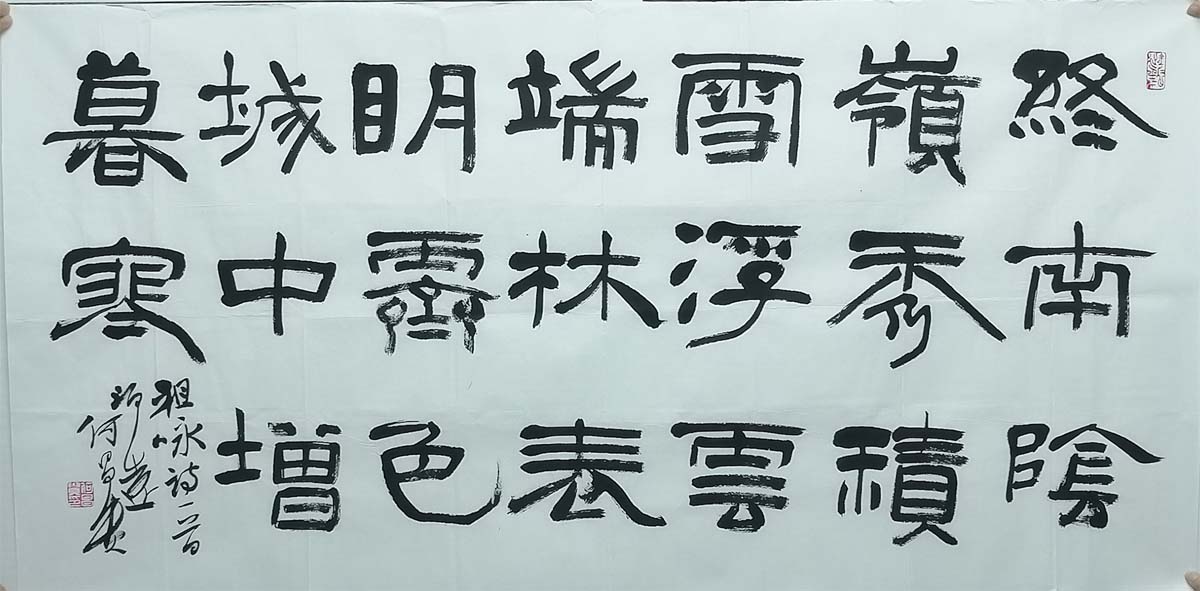 終南陰
嶺秀積
雪浮雲
端林表
明霽色
城中增
暮寒
祖咏诗一首
何昌